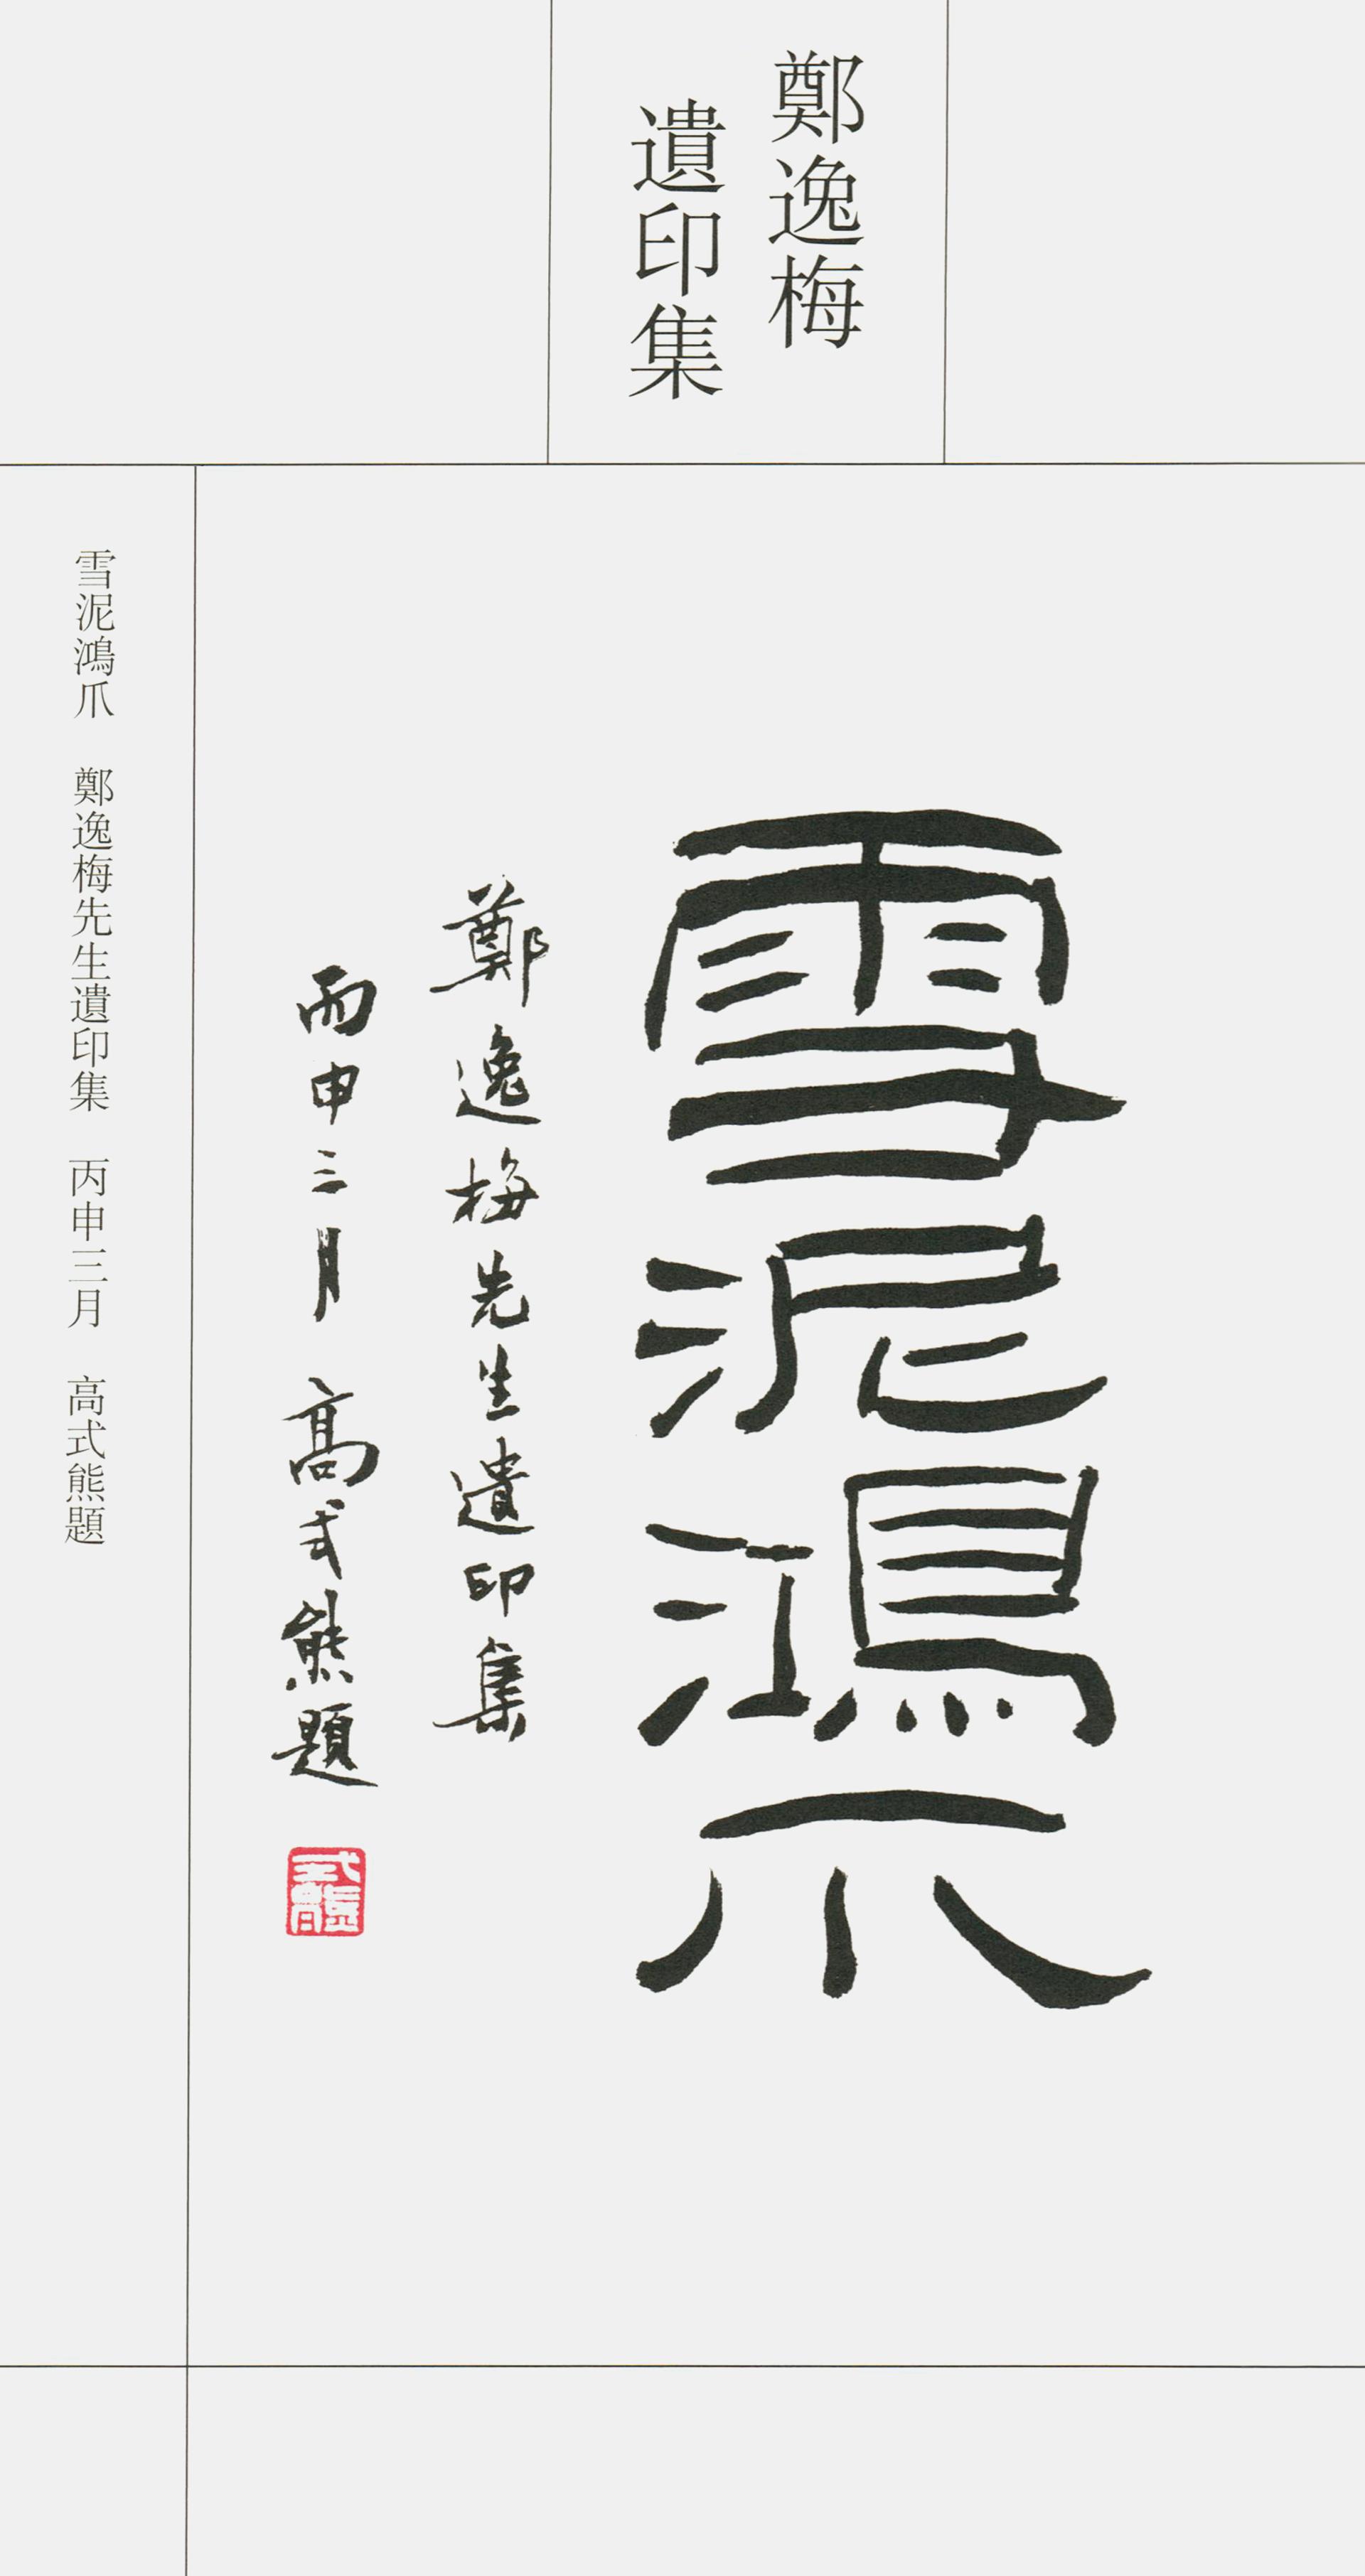 鄭逸梅
遺印集
雪泥鴻爪
鄭逸梅先生遺印集
丙申三月 高式熊題
式熊
雪泥鴻爪 鄭逸梅先生遺印集 丙申三月 高式熊題